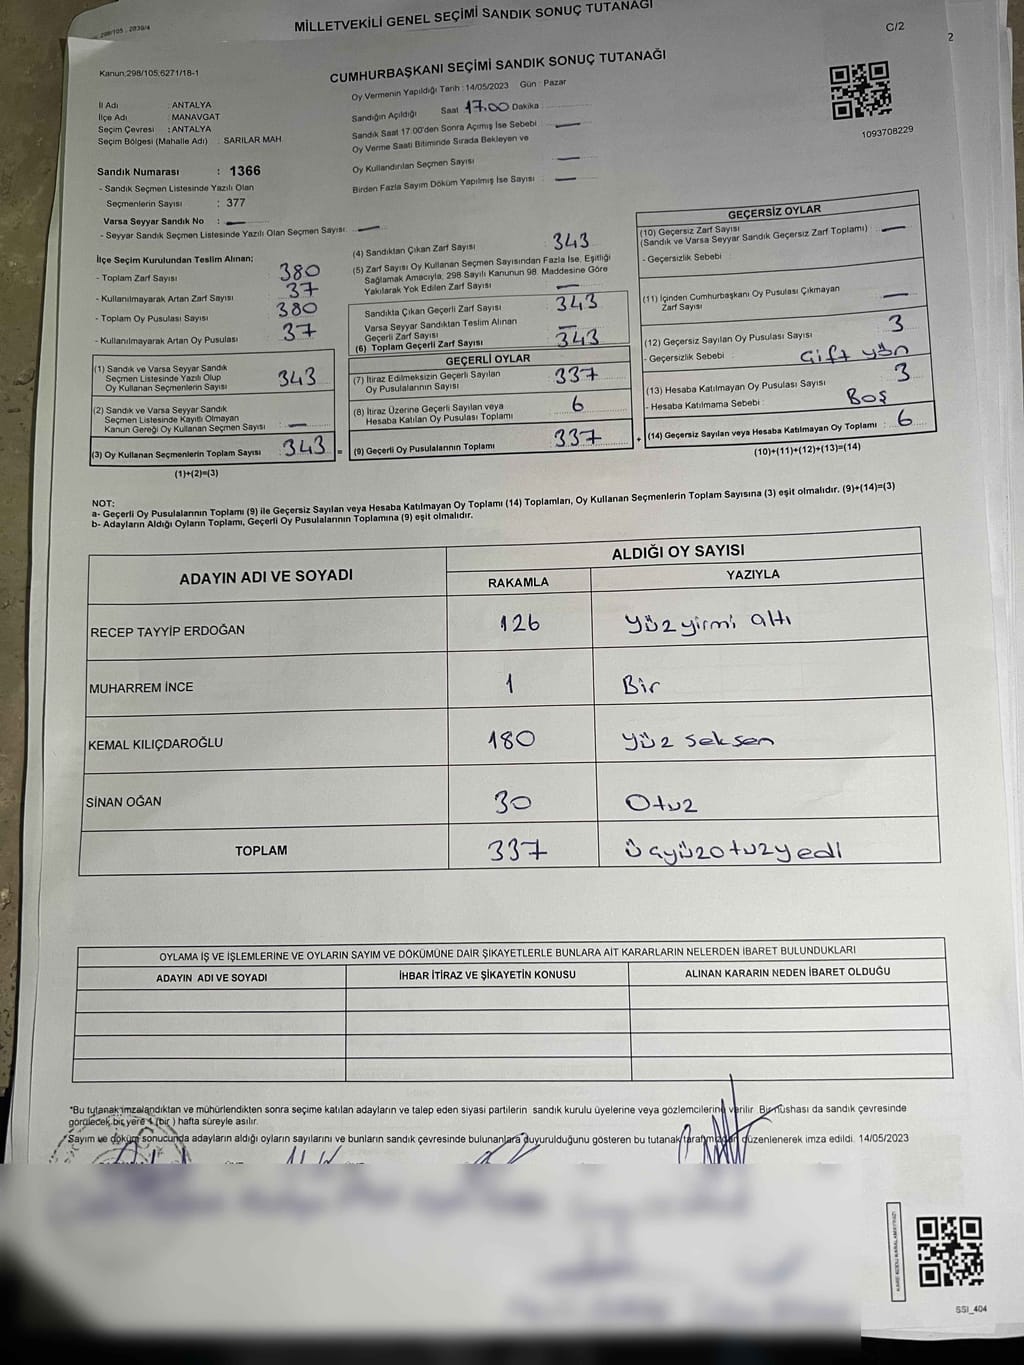 298/105 2839/4
MİLLETVEKİLİ GENEL SEÇİMİ SANDIK SONUÇ TUTANAĞI
C/2
2
Kanun:298/105;6271/18-1
CUMHURBAŞKANI SEÇİMİ SANDIK SONUÇ TUTANAĞI
İl Adı : ANTALYA
İlçe Adı : MANAVGAT
Seçim Çevresi : ANTALYA
Seçim Bölgesi (Mahalle Adı) : SARILAR MAH
Oy Vermenin Yapıldığı Tarih : 14/05/2023 Gün : Pazar
Sandığın Açıldığı Saat 17.00 Dakika :
Sandık Saat 17 00'den Sonra Açımış İse Sebebi —
Oy Verme Saati Bitiminde Sırada Bekleyen ve
Oy Kullandırılan Seçmen Sayısı : —
Birden Fazla Sayım Döküm Yapılmış İse Sayısı : —
1093708229
Sandık Numarası : 1366
- Sandık Seçmen Listesinde Yazılı Olan
Seçmenlerin Sayısı : 377
Varsa Seyyar Sandık No : —
- Seyyar Sandık Seçmen Listesinde Yazılı Olan Seçmen Sayısı: —
İlçe Seçim Kurulundan Teslim Alınan;
- Toplam Zarf Sayısı : 380
- Kullanılmayarak Artan Zarf Sayısı : 37
- Toplam Oy Pusulası Sayısı : 380
- Kullanılmayarak Artan Oy Pusulası : 37
(1) Sandık ve Varsa Seyyar Sandık
Seçmen Listesinde Yazılı Olup
Oy Kullanan Seçmenlerin Sayısı : 343
(2) Sandık ve Varsa Seyyar Sandık
Seçmen Listesinde Kayıtlı Olmayan
Kanun Gereği Oy Kullanan Seçmen Sayısı : —
(3) Oy Kullanan Seçmenlerin Toplam Sayısı : 343 =
(1)+(2)=(3)
(4) Sandıktan Çıkan Zarf Sayısı : 343
(5) Zarf Sayısı Oy Kullanan Seçmen Sayısından Fazla İse, Eşitliği
Sağlamak Amacıyla, 298 Sayılı Kanunun 98. Maddesine Göre
Yakılarak Yok Edilen Zarf Sayısı : —
Sandıkta Çıkan Geçerli Zarf Sayısı : 343
Varsa Seyyar Sandıktan Teslim Alınan
Geçerli Zarf Sayısı : —
(6) Toplam Geçerli Zarf Sayısı : 343
GEÇERLİ OYLAR
(7) İtiraz Edilmeksizin Geçerli Sayılan
Oy Pusulalarının Sayısı : 337
(8) İtiraz Üzerine Geçerli Sayılan veya
Hesaba Katılan Oy Pusulası Toplamı : 6
(9) Geçerli Oy Pusulalarının Toplamı : 337 +
GEÇERSİZ OYLAR
(10) Geçersiz Zarf Sayısı :
(Sandık ve Varsa Seyyar Sandık Geçersiz Zarf Toplamı) —
- Geçersizlik Sebebi :
(11) İçinden Cumhurbaşkanı Oy Pusulası Çıkmayan
Zarf Sayısı : —
(12) Geçersiz Sayılan Oy Pusulası Sayısı : 3
- Geçersizlik Sebebi : Çift yön
(13) Hesaba Katılmayan Oy Pusulası Sayısı : 3
- Hesaba Katılmama Sebebi : Boş
(14) Geçersiz Sayılan veya Hesaba Katılmayan Oy Toplamı : 6
(10)+(11)+(12)+(13)=(14)
NOT:
a- Geçerli Oy Pusulalarının Toplamı (9) ile Geçersiz Sayılan veya Hesaba Katılmayan Oy Toplamı (14) Toplamları, Oy Kullanan Seçmenlerin Toplam Sayısına (3) eşit olmalıdır. (9)+(14)=(3)
b- Adayların Aldığı Oyların Toplamı, Geçerli Oy Pusulalarının Toplamına (9) eşit olmalıdır.
ADAYIN ADI VE SOYADI
ALDIĞI OY SAYISI
RAKAMLA YAZIYLA
RECEP TAYYİP ERDOĞAN 126 Yüz yirmi altı
MUHARREM İNCE 1 Bir
KEMAL KILIÇDAROĞLU 180 Yüz seksen
SİNAN OĞAN 30 Otuz
TOPLAM 337 Üçyüzotuzyedi
OYLAMA İŞ VE İŞLEMLERİNE VE OYLARIN SAYIM VE DÖKÜMÜNE DAİR ŞİKAYETLERLE BUNLARA AİT KARARLARIN NELERDEN İBARET BULUNDUKLARI
ADAYIN ADI VE SOYADI İHBAR İTİRAZ VE ŞİKAYETİN KONUSU ALINAN KARARIN NEDEN İBARET OLDUĞU
*Bu tutanak imzalandıktan ve mühürlendikten sonra seçime katılan adayların ve talep eden siyasi partilerin sandık kurulu üyelerine veya gözlemcilerine verilir. Bir nüshası da sandık çevresinde
görülecek bir yere 1 (bir ) hafta süreyle asılır.
*Sayım ve döküm sonucunda adayların aldığı oyların sayılarını ve bunların sandık çevresinde bulunanlara duyurulduğunu gösteren bu tutanak tarafımızdan düzenlenerek imza edildi. 14/05/2023
SSI_404